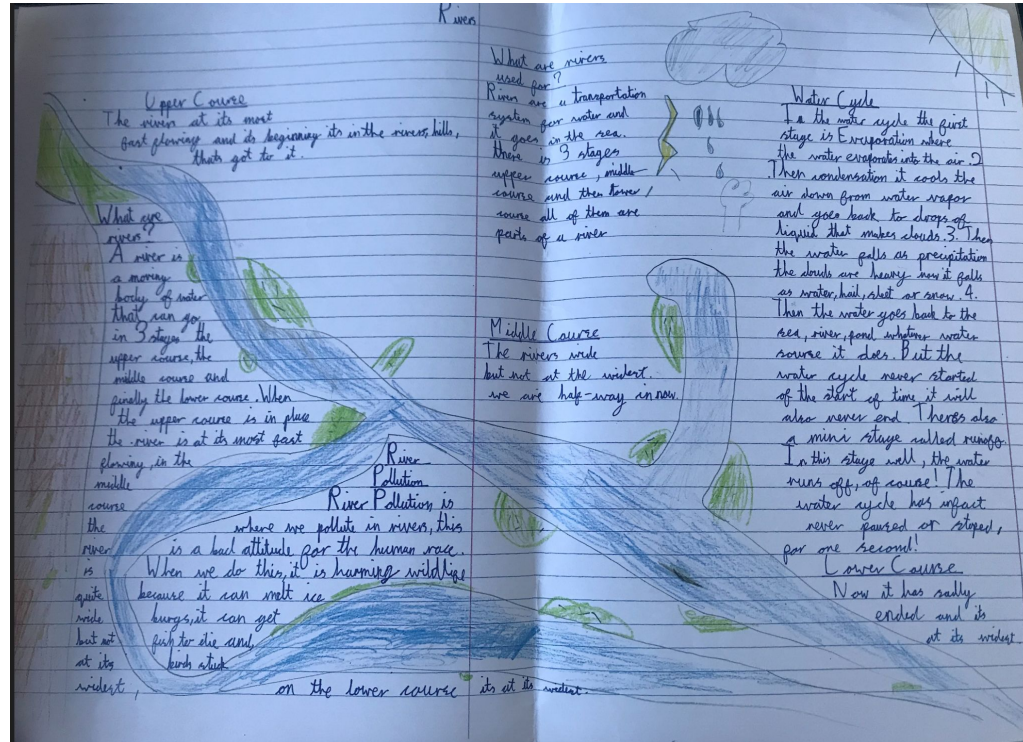 Rivers
Upper Course
The rivers at its most
fast flowing and its beginning its in the rivers, hills,
thats got to it.
What are
rivers?
A river is
a moving
body of water
that can go
in 3 stages the
upper course, the
middle course and
finally the lower course. When
the upper course is in place
the river is at its most fast
flowing, in the
middle
course
the
river
is
quite
wide
but not
at its
widest,
on the lower course its at its widest.
River
Pollution
River Pollution is
where we pollute in rivers, this
is a bad attitude for the human race.
When we do this, it is harming wildlife
because it can melt ice
burgs, it can get
fish to die and
birds stuck
What are rivers
used for?
Rivers are a transportation
system for water and
it goes in the sea.
there is 3 stages
upper course, middle
course and then lower
course all of them are
parts of a river
Middle Course
The rivers wide
but not at the widest.
we are half-way in now.
Water Cycle
In the water cycle the first
stage is Evaporation where
the water evaporates into the air. 2
Then condensation it cools the
air down from water vapor
and goes back to drops of
liquid that makes clouds. 3. Then
the water falls as precipitation
the clouds are heavy now it falls
as water, hail, sleet or snow. 4.
Then the water goes back to the
sea, river, pond whatever water
sourse it does. But the
water cycle never started
of the start of time it will
also never end. Theres also
a mini stage called runoff.
In this stage well, the water
runs off, of course! The
water cycle has infact
never paused or stoped,
for one second!
Lower Course
Now it has sadly
ended and its
at its widest